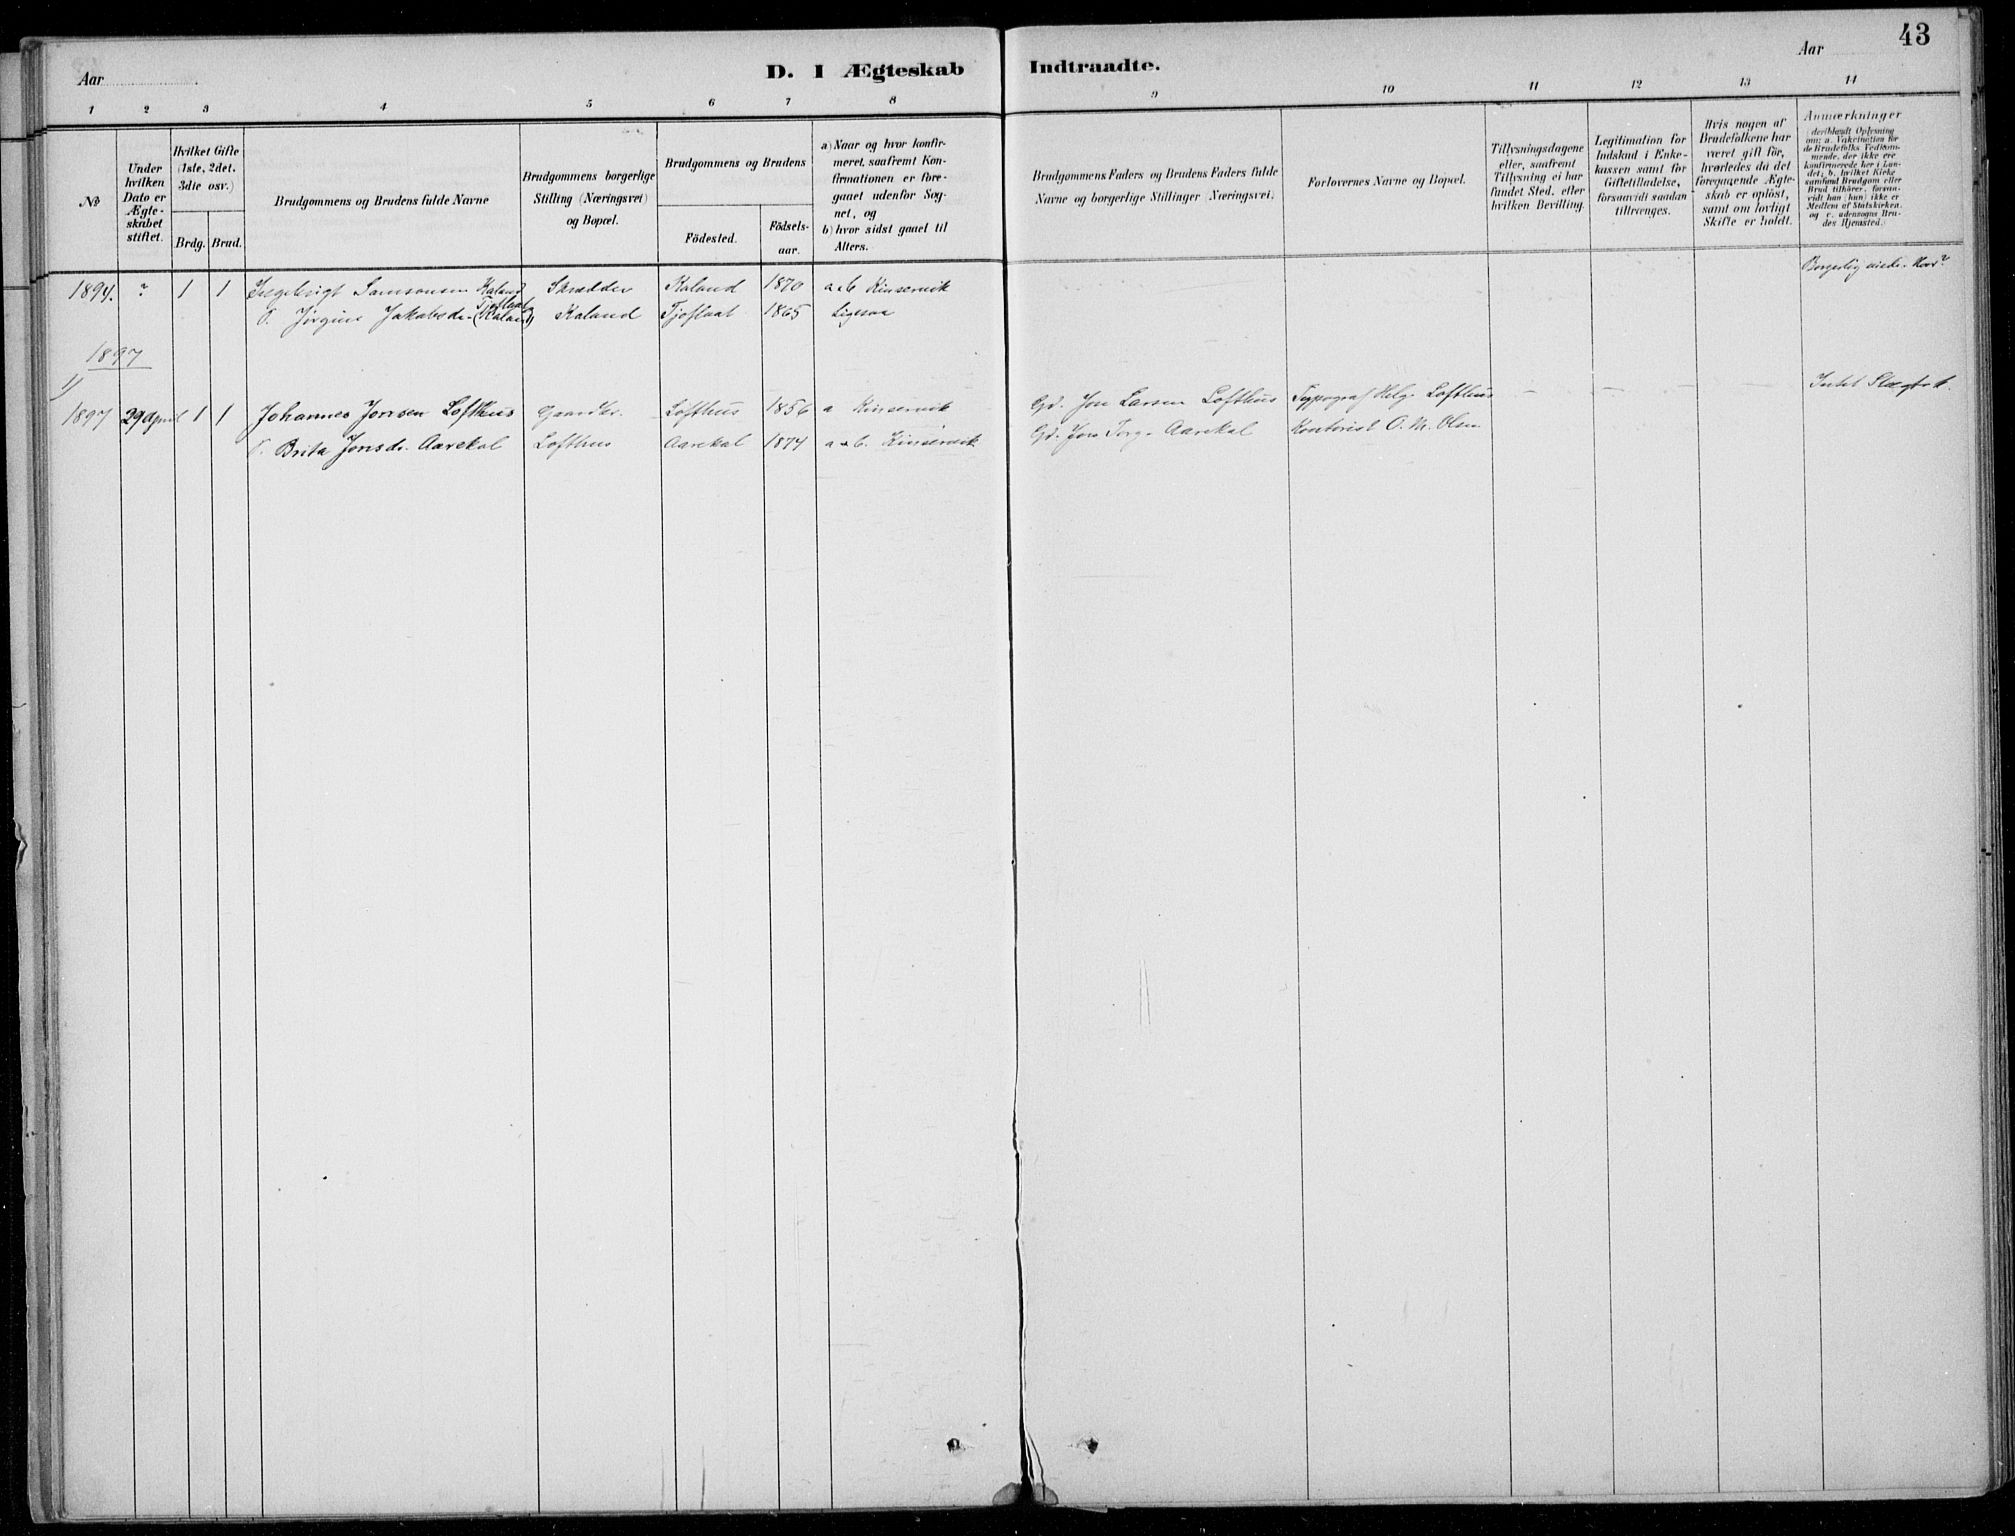 43
Aar
D. I Ægteskab Indtraadte.
Aar
1 2 3 4 5 6 7 8 9 10 11 12 13 14
No
Under hvilken Dato er Ægteskabet stiftet.
Hvilket Gifte (1ste, 2det. 3die osv.)
Brdg. Brud.
Brudgommens og Brudens fulde Navne
Brudgommens borgerlige Stilling (Næringsvei) og Bopæl.
Brudgommens og Brudens
Födested.
Födsels-aar.
a) Naar og hvor konfirmeret, saafremt Konfirmationen er foregaaet udenfor Sognet, og
b) hvor sidst gaaet til Alters.
Brudgommens Faders og Brudens Faders fulde Navne og borgerlige Stillinger (Næringsvei).
Forlovernes Navne og Bopæl.
Tillysningsdagene eller, saafremt Tillysning ei har fundet Sted, efter hvilken Bevilling.
Legitimation for Indskud i Enkekassen samt for Giftetilladelse, forsaavidt saadan tiltrænges.
Hvis nogen af Brudefolkene har været gift för, hvorledes da det foregaaende Ægteskab er oplöst, samt om lovligt Skifte er holdt.
Anmærkninger (deriblandt Oplysning om: a. Vakcination for de Brudefolks Vedkommende, der ikke ere konfirmerede her i Landet; b. hvilket Kirkesamfund Brudgom eller Brud tilhörer, forsaavidt han (hun) ikke er Medlem af Statskirken, og c. udensogns Brudes Hjemsted.)
1894. ? 1 1 Ingebrigt Samsonsen Kaland Skrædder Kaland 1870 a+b Kinservik
Borgerlig viede. Hvor?
T. Jørgine Jakobsdr. Tjoflaat (Kaland) Kaland Tjoflaat 1865 Ligesaa
1897
1/
1897 29 April 1 1 Johannes Jonsen Lofthus Gaardbr. Lofthus 1856 a Kinservik Gd. Jon Larsen Lofthus Typograf Helge Lofthus — — — Intet Slægtsk.
T. Brita Jonsdr. Aarekol Lofthus Aarekol 1874 a+b. Kinservik Gd. Jon Torg. Aarekol Kontorist O. M. Olsen